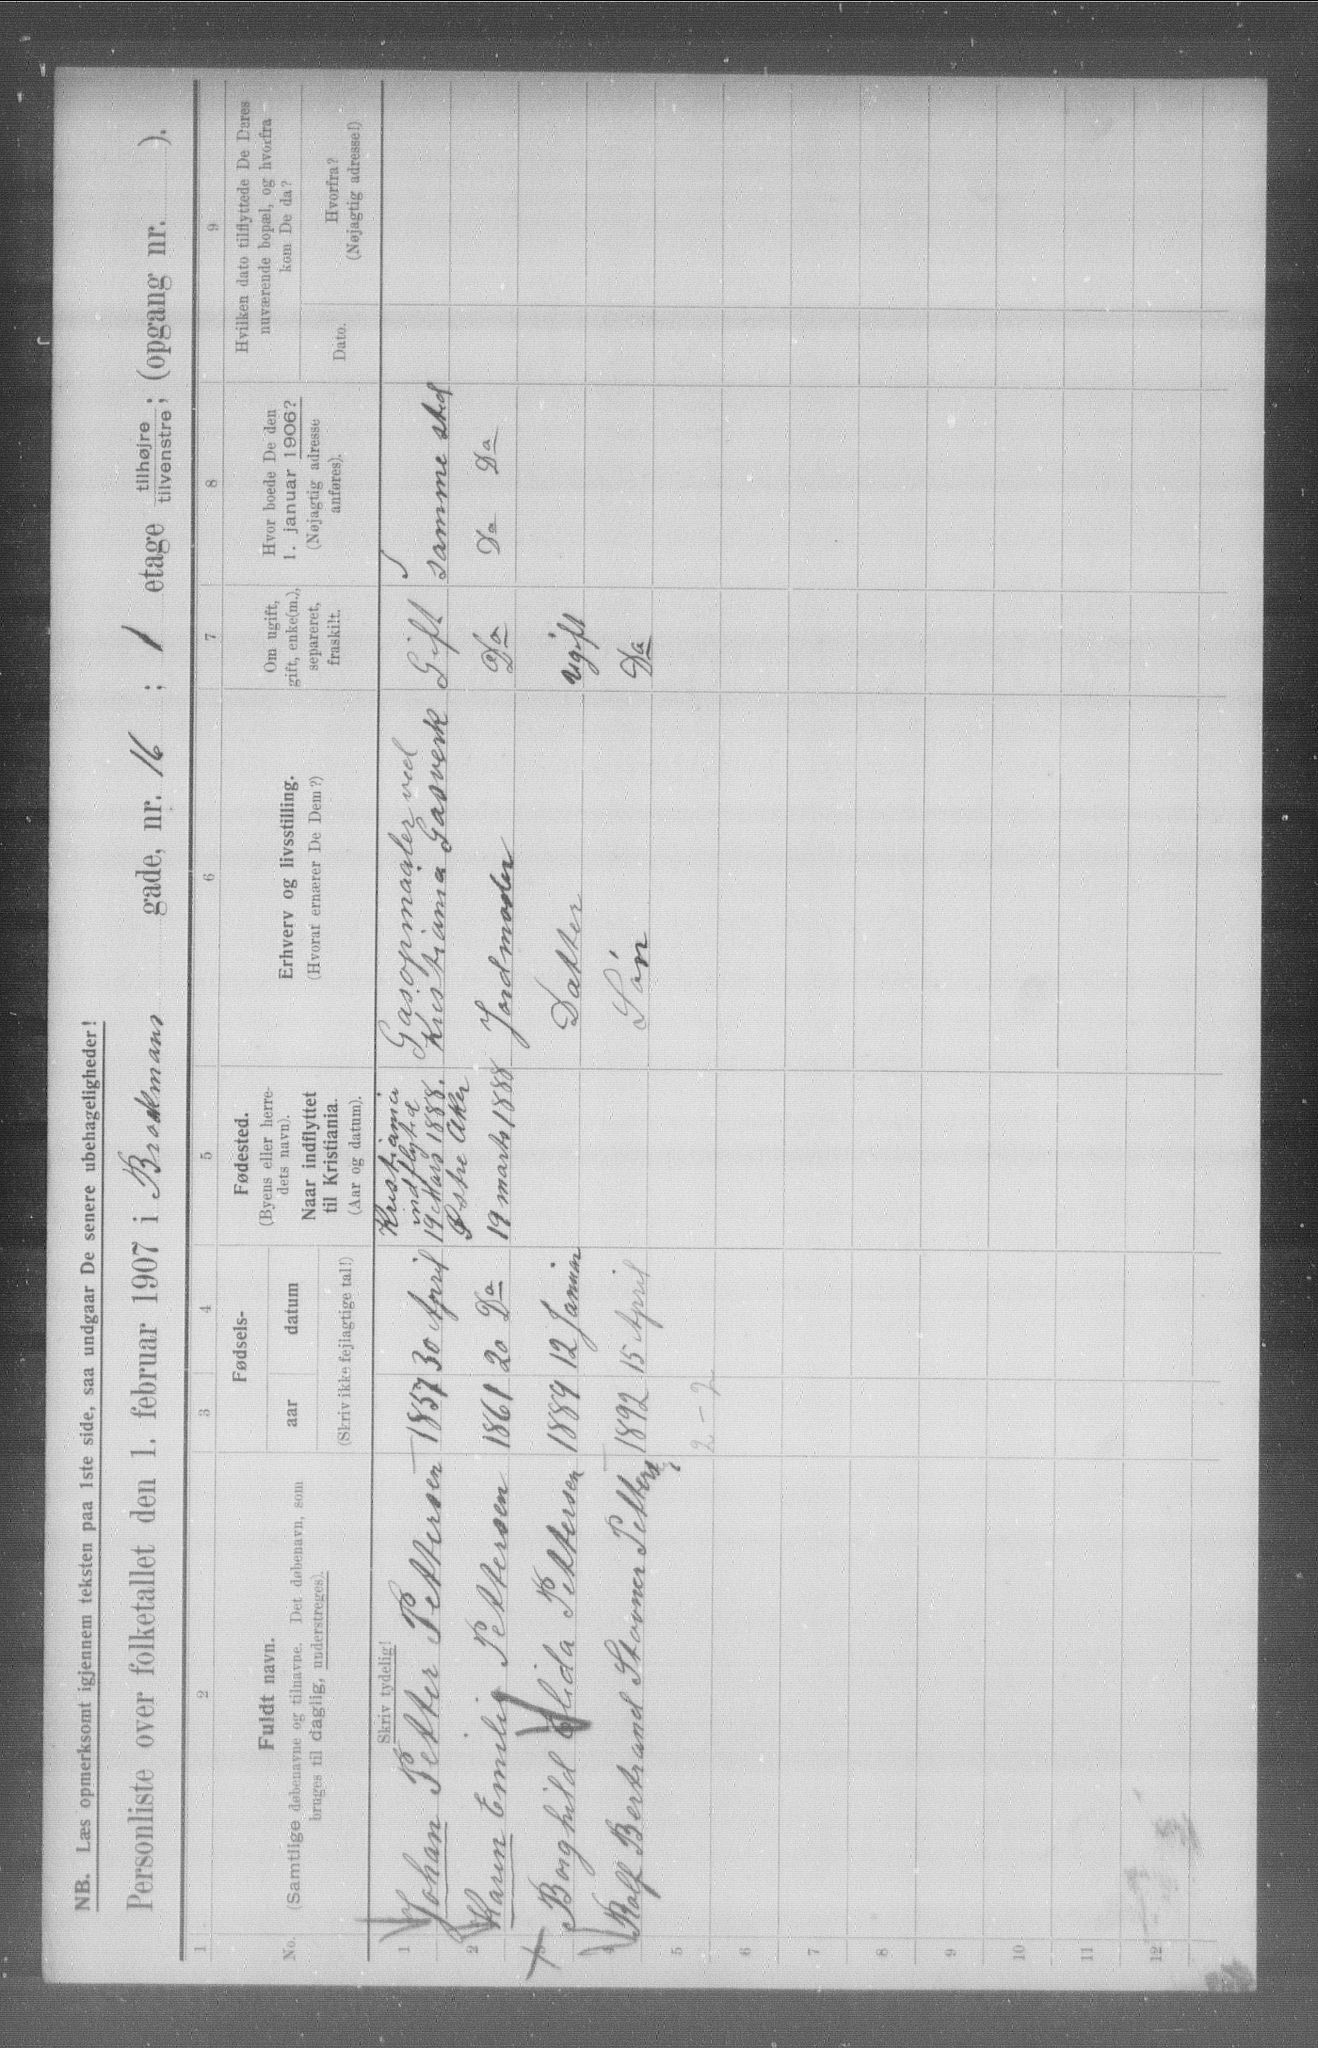 NB. Læs opmerksomt igjennem teksten paa 1ste side, saa undgaar De senere ubehageligheder!
Personliste over folketallet den 1. februar 1907 i Brockmans gade, nr. 16 ; 1 etage tilhøjre ; (opgang nr. ).
tilvenstre ;
1 2 3 4 5 6 7 8 9
No.
Fuldt navn.
(Samtlige døbenavne og tilnavne. Det døbenavn, som
bruges til daglig, understreges).
Fødsels-
aar datum
(Skriv ikke fejlagtige tal!)
Fødested.
(Byens eller herre-
dets navn).
Naar indflyttet
til Kristiania.
(Aar og datum).
Erhverv og livsstilling.
(Hvoraf ernærer De Dem?)
Om ugift,
gift, enke(m.),
separeret,
fraskilt.
Hvor boede De den
1. januar 1906?
(Nøjagtig adresse
anføres).
Hvilken dato tilflyttede De Deres
nuværende bopæl, og hvorfra
kom De da?
Dato.
Hvorfra?
(Nøjagtig adresse!)
Skriv tydelig!
1 Johan Petter Pettersen 1857 30 April
Kristiania
indflyttet
19 Mars 1888.
Gasopmaaler ved
Kristiania Gasverk
Gift samme sted
2 Karen Emilie Pettersen 1861 20 Da
Østre Aker
19 marts 1888
Jordmoder Da Da Da
3 Borghild Alida Pettersen 1889 12 Januar Datter ugift
4 Rolf Bertrand Stovner Petters 1892 15 April Søn Da
5 2 - 2
6
7
8
9
10
11
12